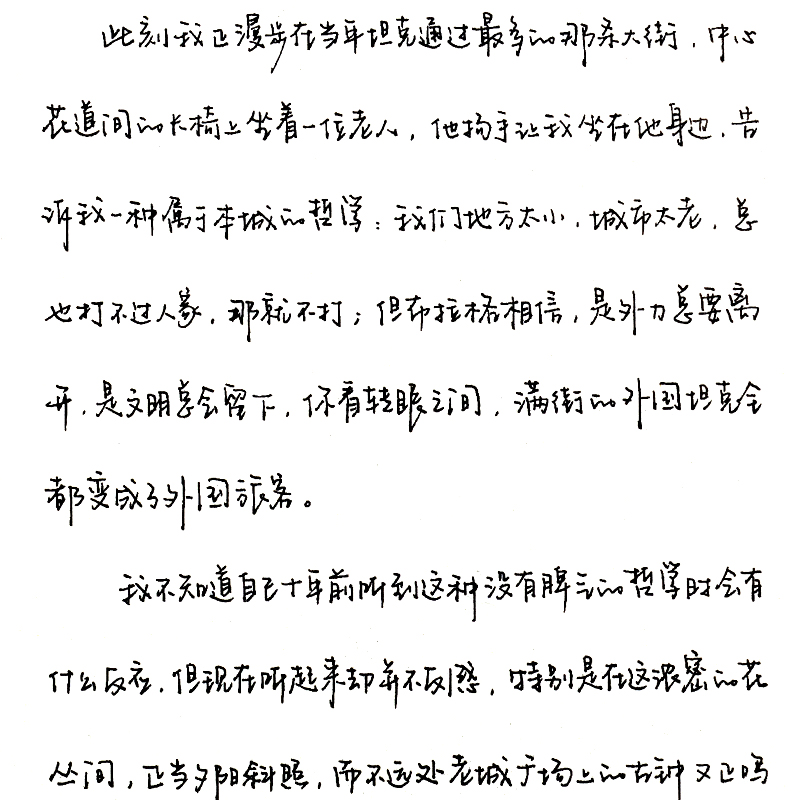 此刻我正漫步在当年坦克通过最多的那条大街，中心
花道间的长椅上坐着一位老人，他扬手让我坐在他身边，告
诉我一种属于本城的哲学：我们地方太小，城市太老，总
也打不过人家，那就不打；但布拉格相信，是外力总要离
开，是文明总会留下，你看转眼之间，满街的外国坦克全
都变成了外国旅客。
我不知道自己十年前听到这种没有脾气的哲学时会有
什么反应，但现在听起来却并不反感，特别是在这浓密的花
丛间，正当夕阳斜照，而不远处老城广场上的古钟又正鸣